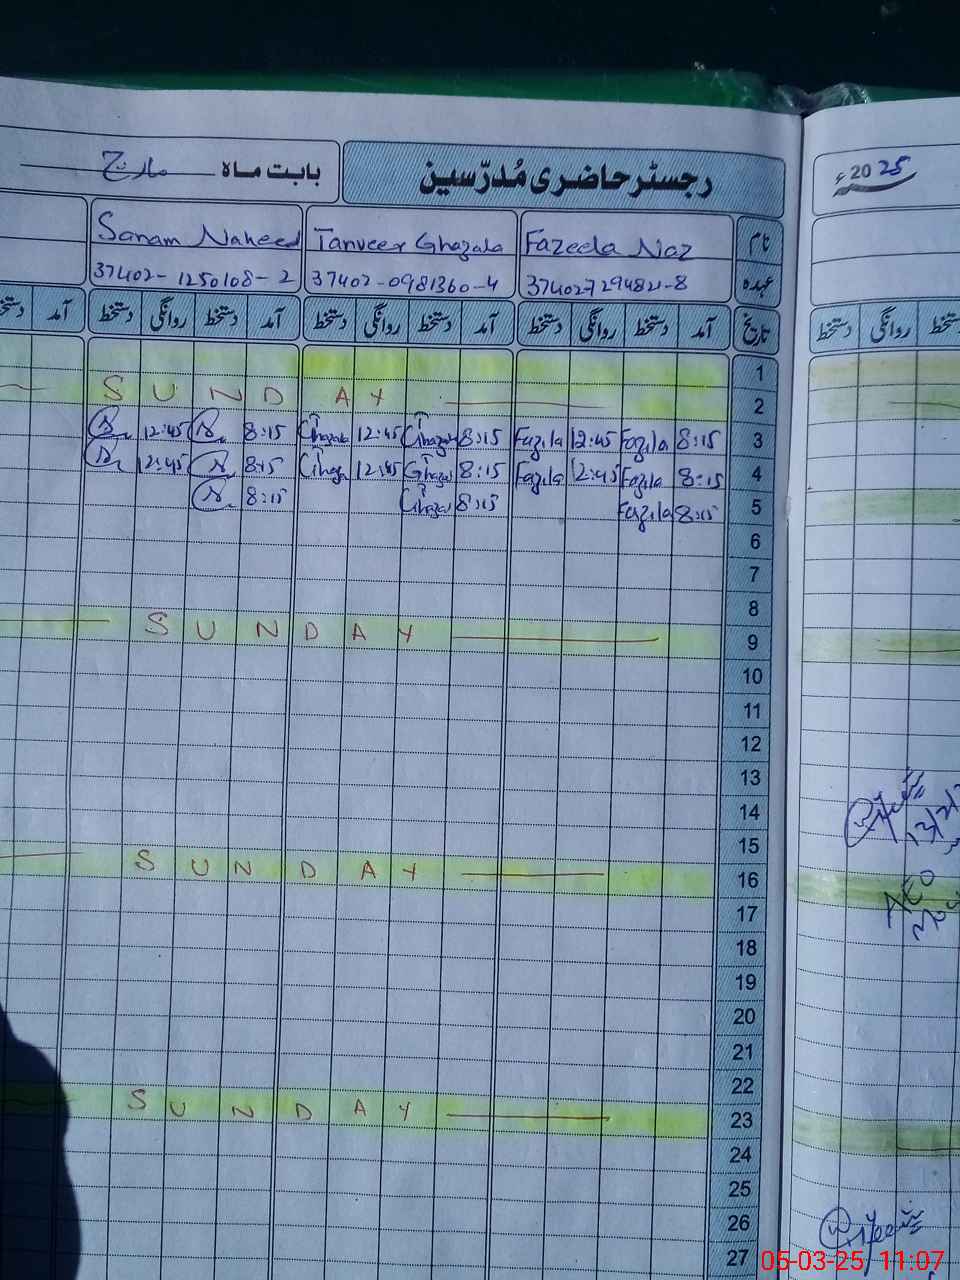 رجسٹر حاضری مُدرّسین
بابت ماہ مارچ
2025ء
نام Fazeela Naz Tanveer Ghazala Sanam Naheed
عہدہ 37402-0981360-4 37402-1250108-2
تاریخ آمد دستخط روانگی دستخط آمد دستخط روانگی دستخط آمد دستخط روانگی دستخط آمد دستخط
روانگی دستخط
1
2 SUNDAY
3 8:15 Fazila 12:45 Fazila 8:15 Ghazala 12:45 Ghazala 8:15 12:45
4 8:15 Fazila 12:45 Fazila 8:15 Ghazal 12:45 8:15 12:45
5 8:15 Fazila 8:15 8:15
6
7
8
9 SUNDAY
10
11
12
13
14
15
16 SUNDAY
17
18
19
20
21
22
23 SUNDAY
24
25
26
27
AEO
05-03-25, 11:07